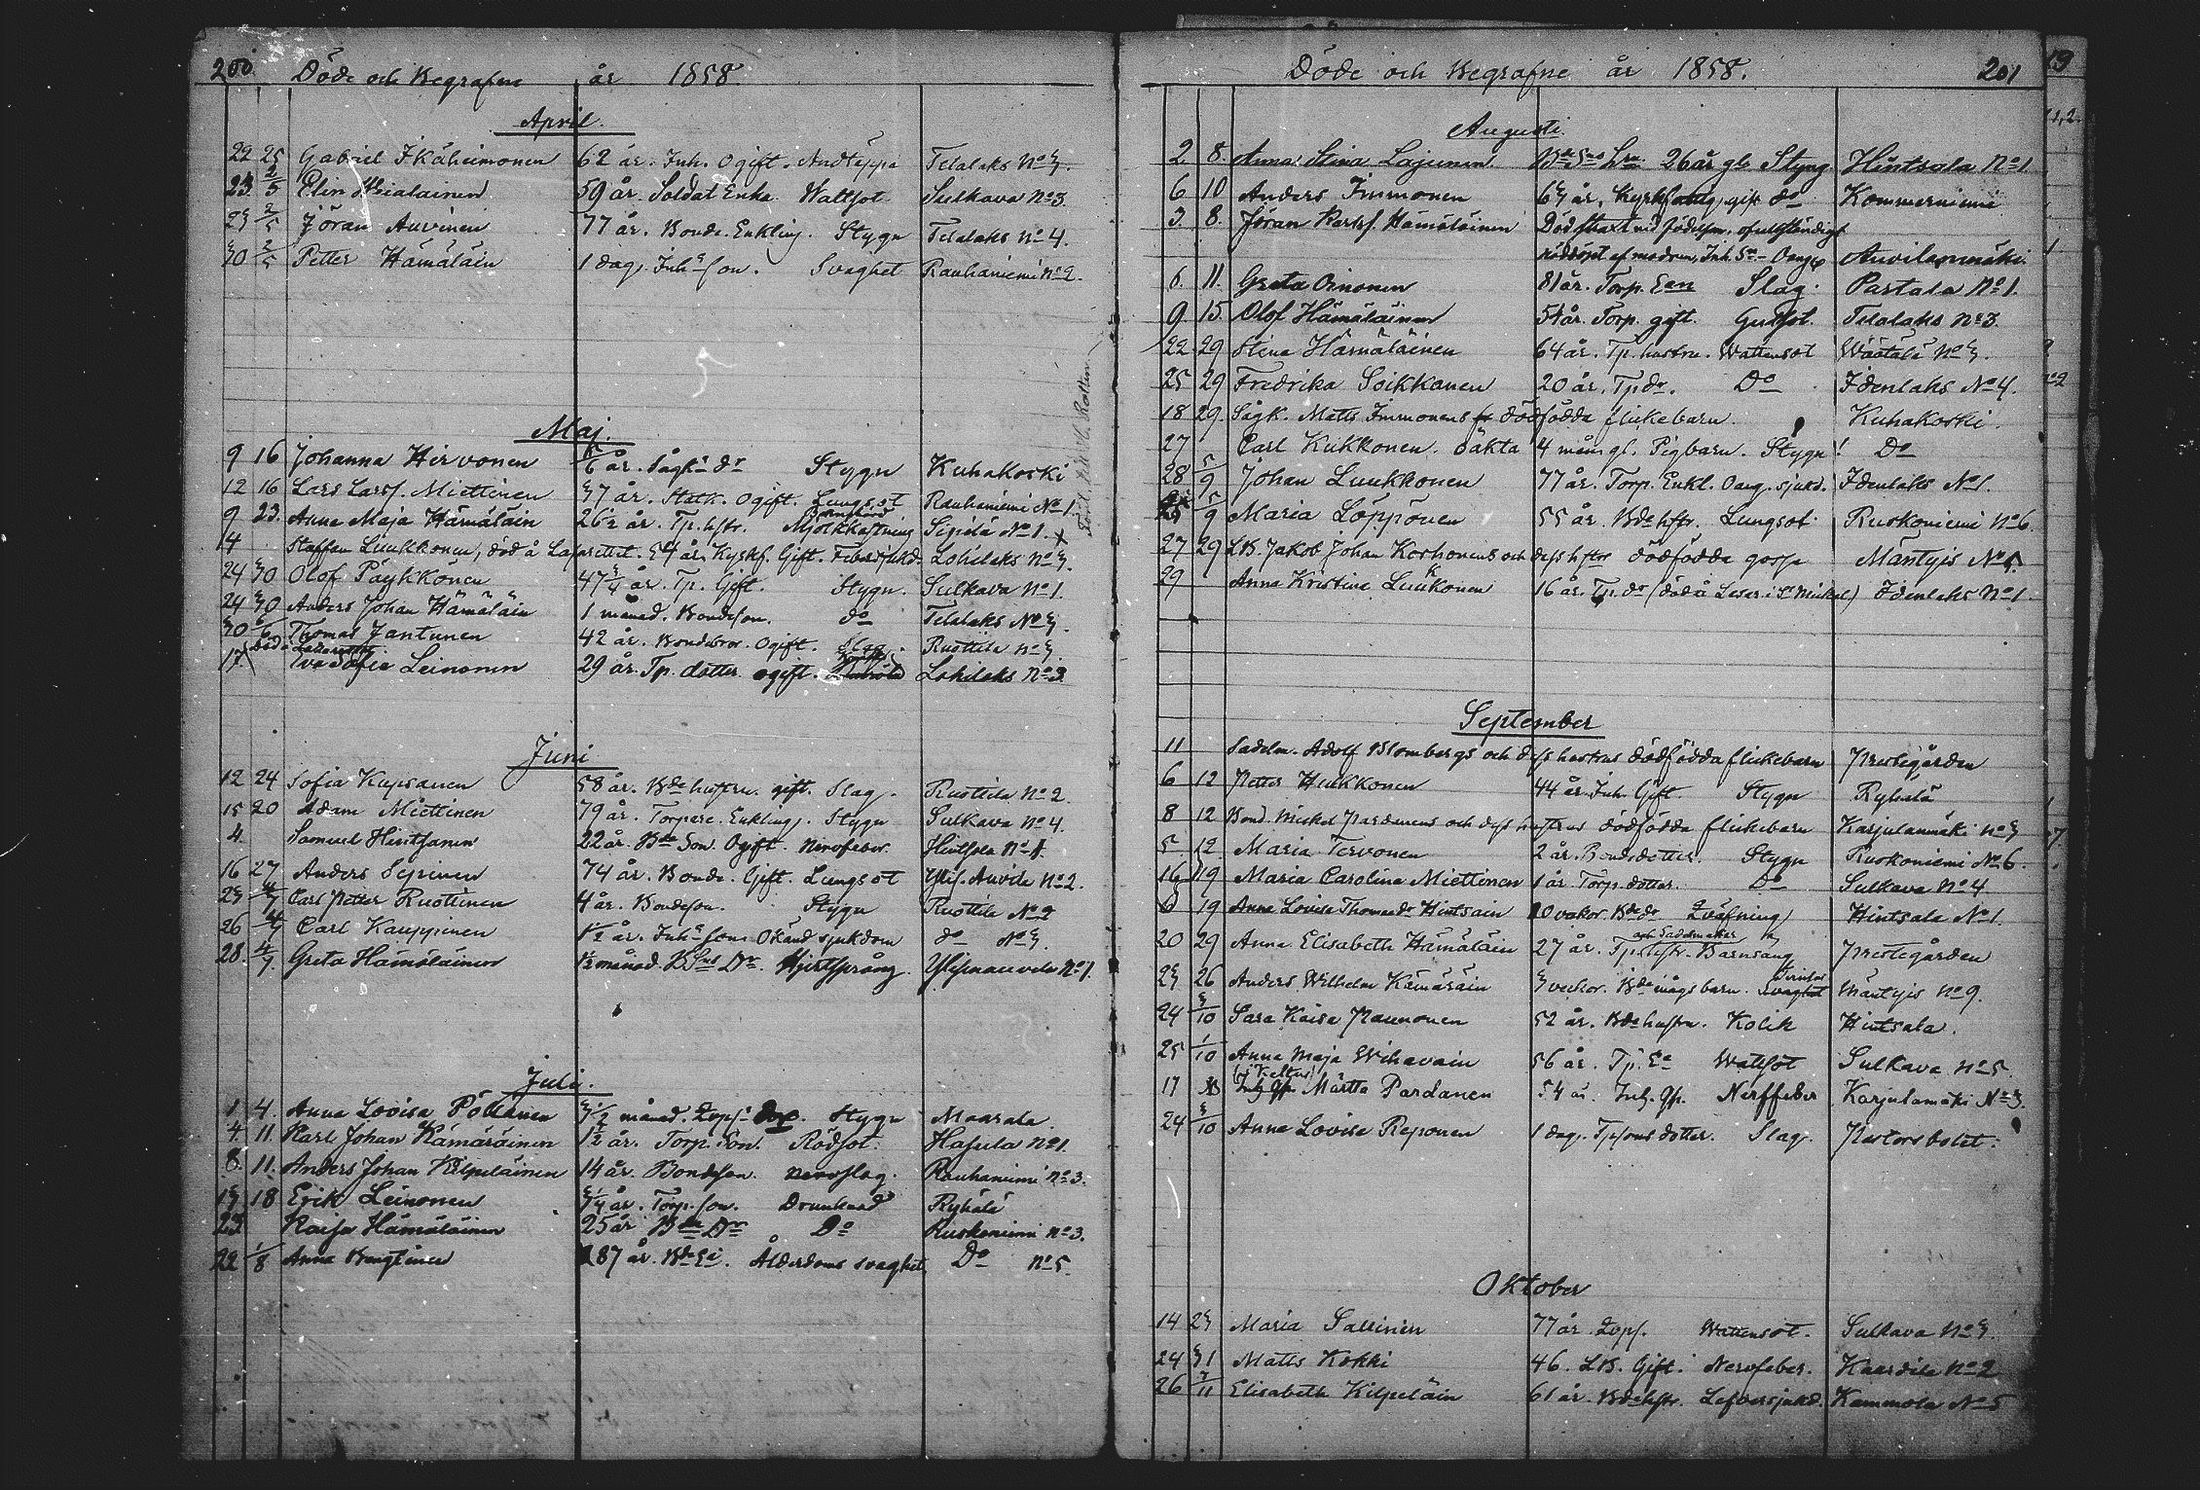 200. Döde och Begrafne år 1858.
April.
22 25 Gabriel Ikäheimonen 62 år. Inh. Ogift. Andtäppa Telalaks No 3.
23 2/5 Elin 59 år. Soldat Enka. Wattsot Sulkava No 3
23 2/5 Jöran Auvinen 77 år. Bonde. Enkling. Stygn Telalaks No 4.
30 2/5 Petter Hämäläin 1 dag. Inhs son. Svaghet Rauhaniemi No 2.
Maj.
9 16 Johanna Hirvonen 6 år. Sågks dr Stygn Kuhakoski
12 16 Lars Larsf. Miettinen 37 år. Statk. Ogift. Lungsot Rauhaniemi No 1.
9 23. Anna Maja Hämäläin 26 1/2 år. Tp. hstr. Mjölkkastning Sipilä No 1. +
14 Staffan Luukkonen, död å Lazarettet. 54 år. Kyrkf. Gift. Lohilaks No 3.
24 30 Olof Päykkönen 47 3/4 år. Tp. Gift. Stygn. Sulkava No 1.
24 30 Anders Johan Hämäläin 1 månad. Bondeson. do Telalaks No 3.
30 6/6 Thomas Jantunen 42 år. Bondebror. Ogift. Slag. Ruottila No 3
död å Lazarettet
17 Eva Sofia Leinonen 29 år. Tp. dotter ogift. Lohilaks No 3.
Juni
12 24 Sofia Kupiainen 58 år. Bde hustru. gift. Slag. Ruottila No 2.
15 20 Adam Miettinen 79 år. Torpare. Enkling. Stygn Sulkava No 4.
4. Samuel Hintsanen 22 år. Bde Son. Ogift. Nervfeber. Hintsala No 1.
16 27 Anders Seprinen 74 år. Bonde. Gift. Lungsot Ylis. Auvila No 2.
23 4/7 Carl Petter Ruottinen 4 år. Bondeson. Stygn Ruottila No 2
26 4/7 Carl Kauppinen 1 1/2 år. Inhs son Okänd sjukdom do No 3.
28. 4/7. Greta Hämäläinen 1 1/2 månad. Dr. Hjertsprång Ylismauvila No 1.
Juli.
1 4. Anna Lovisa Pöllänen 3 1/2 månad. Stygn Maarala.
4. 11. Karl Johan Kämäräinen 1 1/2 år. Torp. Son. Rödsot. Hasula No 1.
8. 11. Anders Johan Kilpeläinen 14 år. Bondeson. nervslag. Rauhaniemi No 3.
13 18 Erik Leinonen 3 1/4 år. Torp. son. Drunknad Ryhälä
23. Kaija Hämäläinen 25 år Bde Dr Do Ruskoniemi No 3.
22 1/8 Anna 87 år. Bde Ea. Ålderdoms svaghet. Do No 5.
Döde och Begrafne år 1858. 201
Augusti.
2. 8. Anna Stina Lajunen. 26 år gl. Styng Hintsala No 1.
6 10 Anders Immonen 63 år. Kyrkfattig, gift do Kommerniemi
3. 8. Jöran Karlsf. Hämäläinen Död straxt vid födelsen, ofullständigt
nöddöpt af modren, Inh. So. Auvilanmäki.
6. 11. Greta Oinonen 81 år. Torp. Ean Slag. Partala No 1.
9. 15. Olof Hämäläinen 54 år. Torp. gift. Gulsot. Telalaks No 3.
22. 29 Stina Hämäläinen 64 år. Tp. hustru. Wattensot Wäätälä No 3.
25 29 Fredrika Soikkanen 20 år. Tp. dr. Do Idenlaks No 4.
18 29. Sågk. Matts Immonens dödfödda flickebarn. Kuhakoski.
27 Carl Kukkonen. oäkta 4 mån. gl. Pigbarn. Stygn! Do
28 5/9 Johan Luukkonen 77 år. Torp. Enkl. Oang. sjukd. Idenlaks No 1.
25 5/9 Maria Löppönen 55 år. Bdehstr. Lungsot. Ruskoniemi No 6.
27 29 LB. Jakob Johan Korhonens och dess hstr dödfödda gosse Mäntyis No 5.
29 Anna Kristina Luukonen 16 år. Tp. dr (död å Lasar. i St Michel) Idenlaks No 1.
September
11 Sadelm. Adolf Blombergs och dess hustrus dödfödda flickebarn Prestegården
6 12 Petter Huikkonen 44 år Inh. Gift. Stygn Ryhälä
8 12 Bond. Mickel Pardanens och dess hustrus dödfödda flickebarn Karjulanmäki No 3
5 12. Maria Tervonen 2 år. Bondedotter. Stygn Ruskoniemi No 6.
16 19 Maria Carolina Miettinen 1 år Torp. dotter. Do Sulkava No 4
6 19 Anna Lovisa Thomasdr Hintsain 10 vekor. Bdedr Qväfning Hintsala No 1.
20 29 Anna Elisabeth Hämäläin 27 år. Tp. hstr. Barnsäng Prestegården
och Sadelmakar
23 26 Anders Wilhelm Kämäräin 3 veckor. Bde mågs barn. Svaghet Mäntyis No 9.
24 3/10 Sara Kaisa Paunonen 52 år. Bde hustru. Kolik Hintsala.
25 1/10 Anna Maja Wihavain 56 år. Tp. Ea Wattsot Sulkava No 5.
17 Inh. Gft. Märtta Pardanen 54 år Inh. Gft. Nerffeber Karjulamäki No 3.
24 3/10 Anna Lovisa Reponen 1 dag. Tpsons dotter. Slag. Pastorsbolet.
Oktober
14 23 Maria Sallinen 77 år. Wattensot. Sulkava No 3.
24 31 Matts Kokki 46. LB. Gift. Nervfeber. Kaartila No 2
26 7/11 Elisabeth Kilpeläin 61 år. Bdehstr. Lefversjukd. Kammola No 5